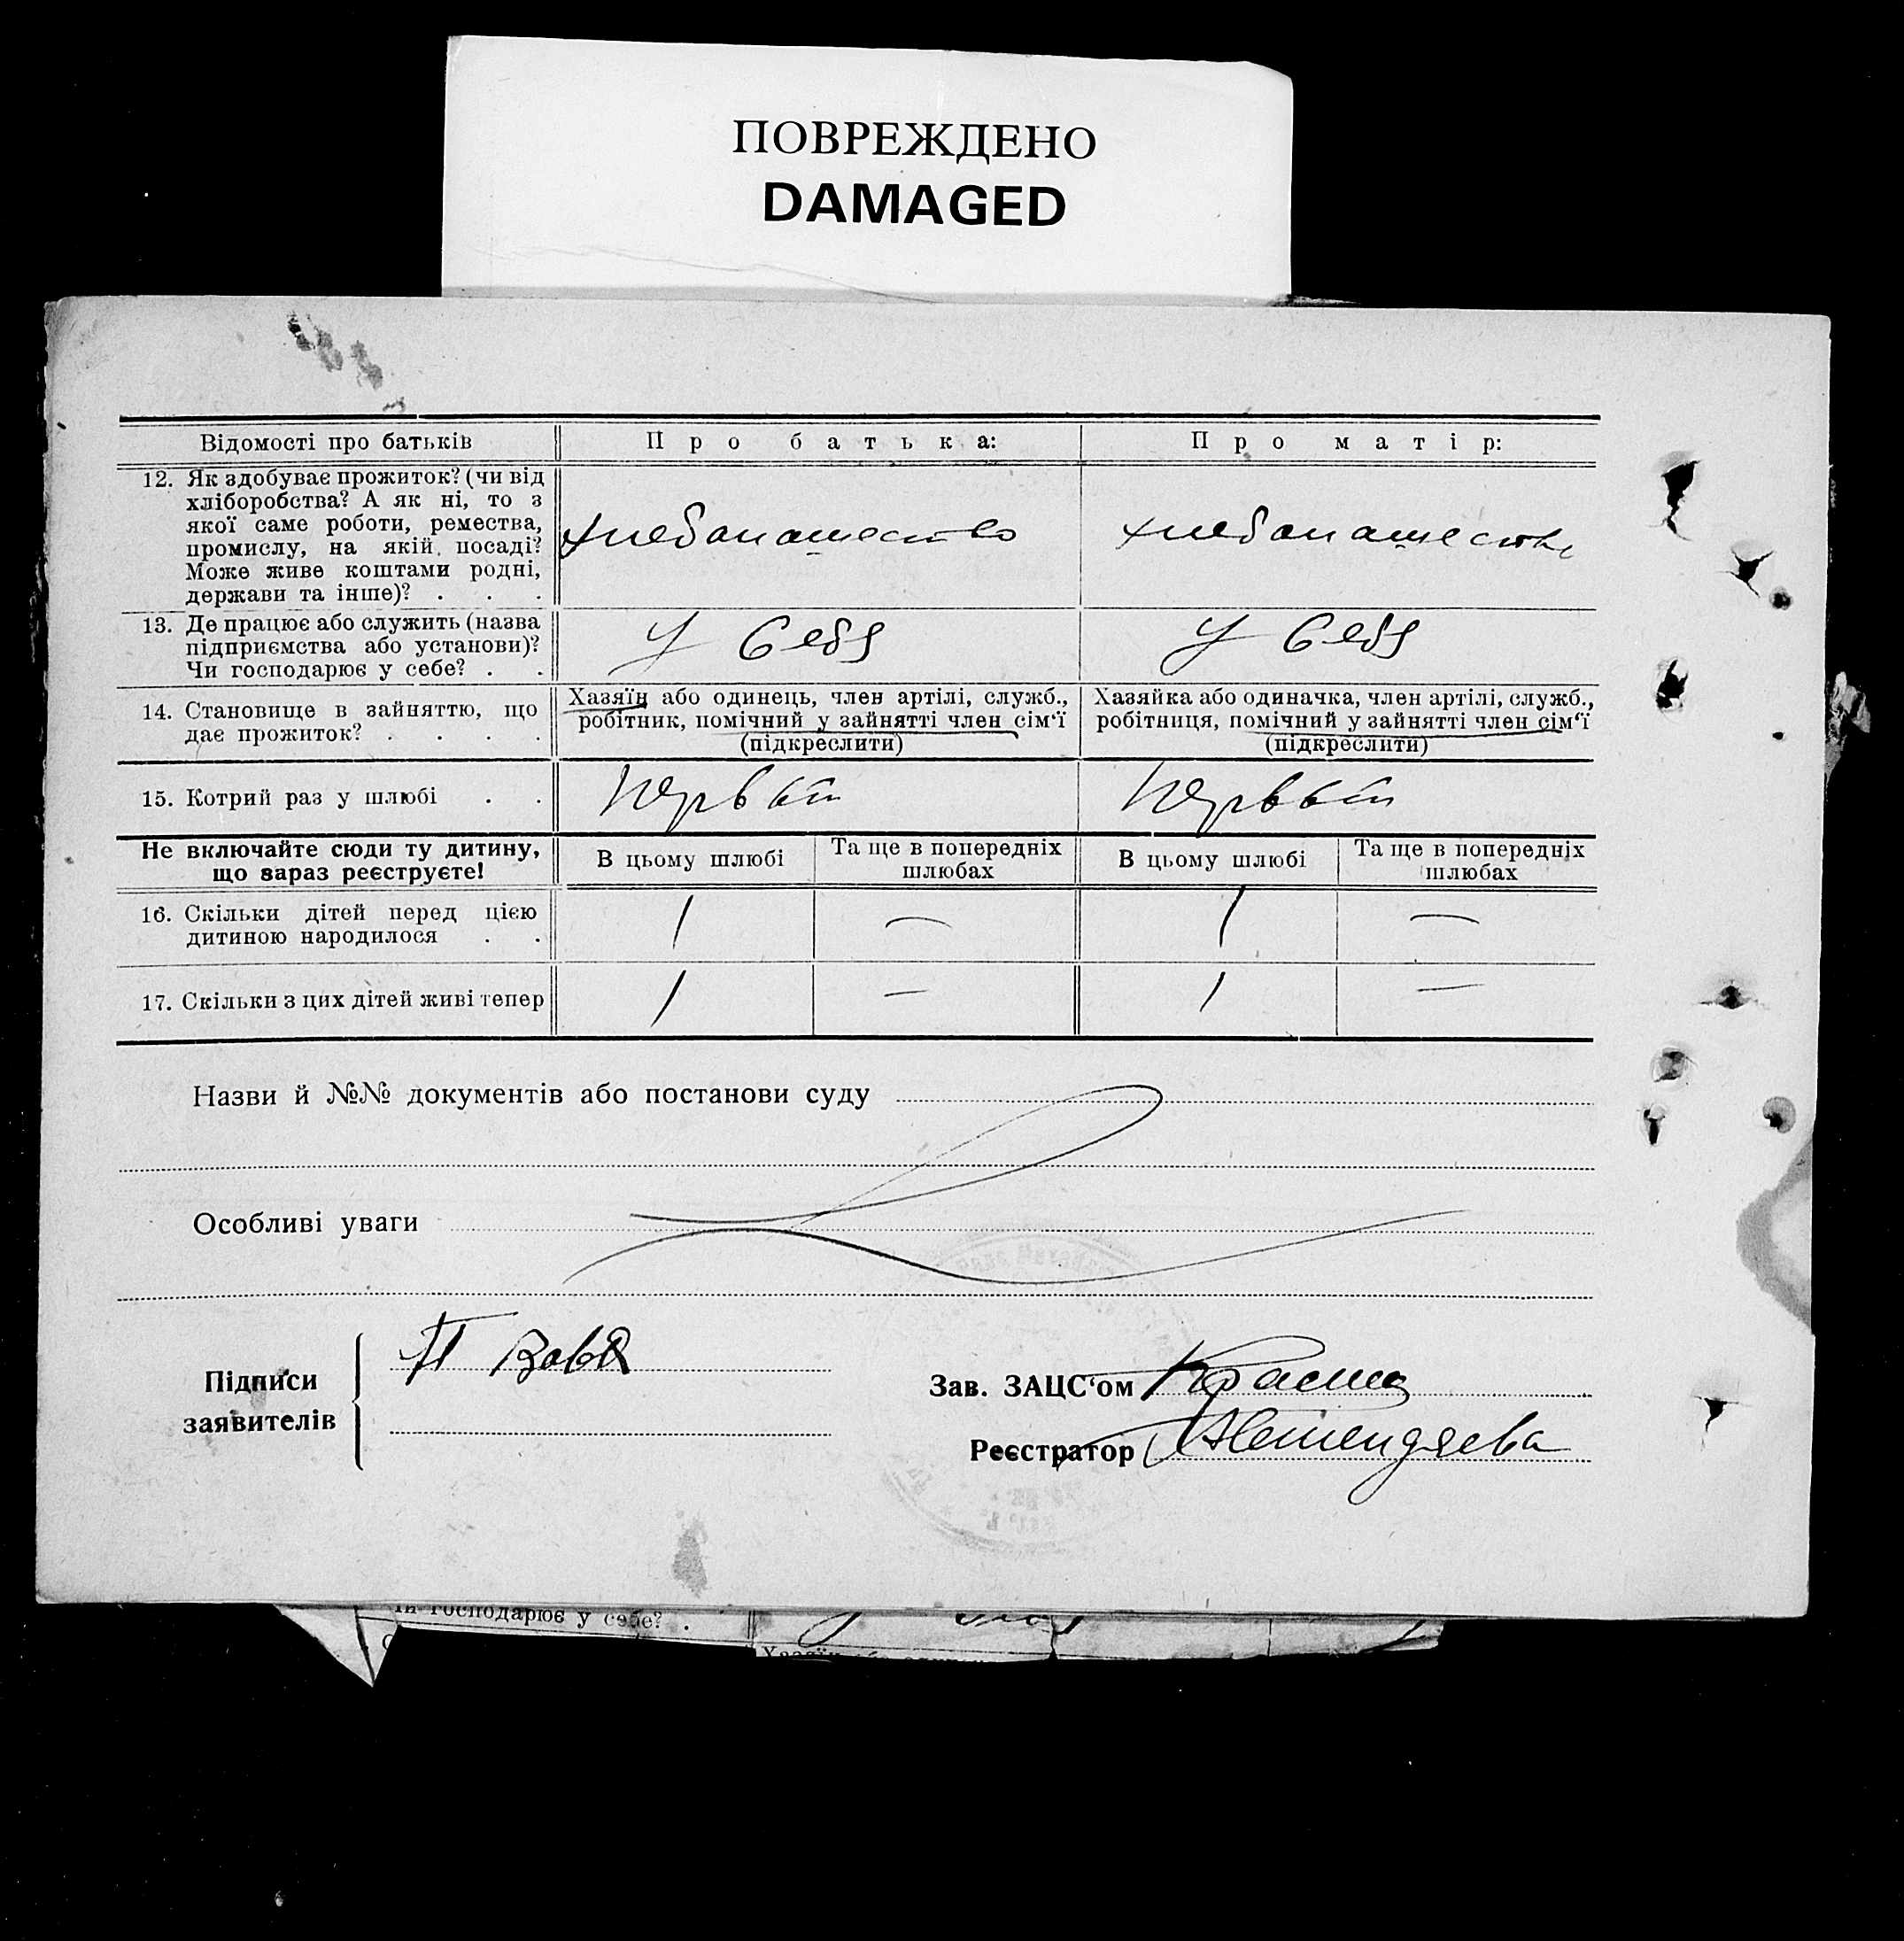 ПОВРЕЖДЕНО
DAMAGED
Відомості про батьків
Про батька:
Про матір:
12. Як здобуває прожиток? (чи від
хліборобства? А як ні, то з
якої саме роботи, ремества,
промислу, на якій посаді?
Може живе коштами родні,
держави та інше)? . . .
хлебопашество
хлебопашество
13. Де працює або служить (назва
підприємства або установи)?
Чи господарює у себе? . .
У Себя
У Себя
14. Становище в зайняттю, що
дає прожиток? . . . .
Хазяїн або одинець, член артілі, служб.,
робітник, помічний у зайнятті член сім'ї
(підкреслити)
Хазяйка або одиначка, член артілі, служб.,
робітниця, помічний у зайнятті член сім'ї
(підкреслити)
15. Котрий раз у шлюбі . .
Первый
Первый
Не включайте сюди ту дитину,
що зараз реєструєте!
В цьому шлюбі
Та ще в попередніх
шлюбах
В цьому шлюбі
Та ще в попередніх
шлюбах
16. Скільки дітей перед цією
дитиною народилося . .
1 — 1 —
17. Скільки з цих дітей живі тепер
1 — 1 —
Назви й №№ документів або постанови суду
Особливі уваги
Підписи
заявителів
П
Зав. ЗАЦС'ом
Реєстратор
чи господарює у себе? .